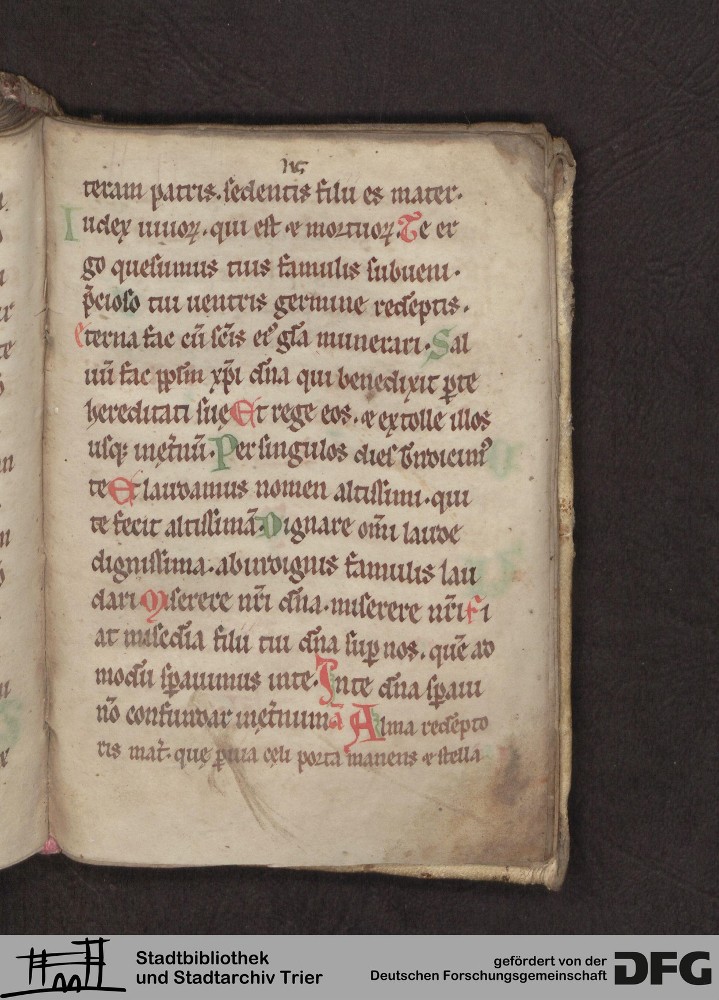 teram patris. sedentis filii es mater.
Iudex uiuoꝝ. qui est ⁊ mortuoꝝ. Te er
go quesumus tuis famulis subueni.
p̄cioso tui uentris germine redēptis.
eterna fac cū scīs ei⁹ gl̄a munerari. Sal
uū fac pp̄lm xp̄i dn̄a qui benedixit ꝑte
hereditati sue Et rege eos. ⁊ extolle illos
usq; inet̄nū. Per singulos dies b̄ndicim⁹
te Et laudamus nomen altissimi. qui
te fecit altissimā. Dignare om̄i laude
dignissima. ab indignis famulis lau
dari Miserere nr̄i dn̄a. miserere nr̄i Fi
at mis̄cdia filii tui dn̄a sup nos. quē ad
modū sperauimus inte. Inte dn̄a speraui
nō confundar inet̄num Alma redēpto
ris mat̄. que ꝑuia celi porta manens ⁊ stella
Stadtbibliothek
und Stadtarchiv Trier
gefördert von der
Deutschen Forschungsgemeinschaft
DFG